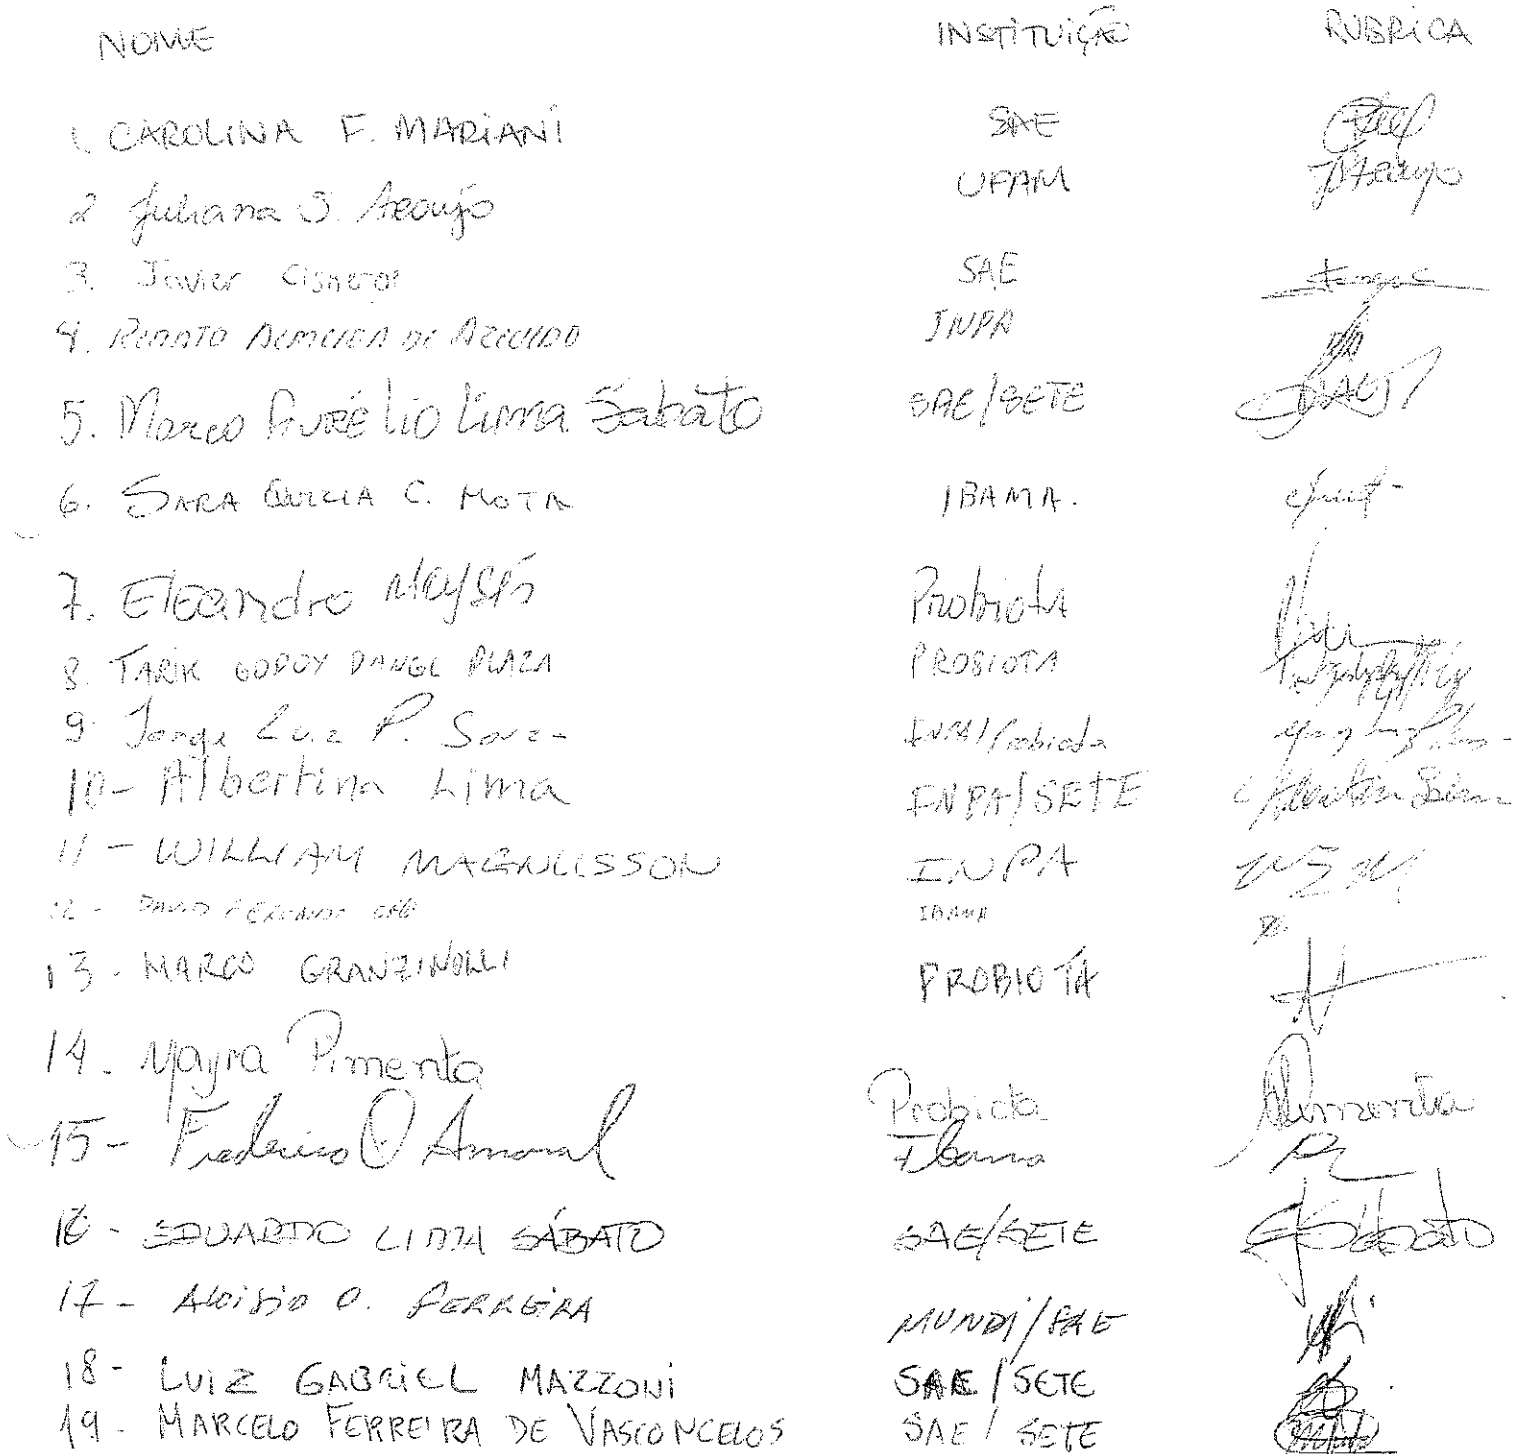 NOME INSTITUIÇÃO RUBRICA
1. CAROLINA F. MARIANI SAE
2 Juliana S. Araujo UFAM JAraujo
3. Javier Cisneros SAE
4. RENATO ALMEIDA DE AZEVEDO INPA
5. Marco AURÉLIO Lima Sabato SAE/SETE
6. SARA C. MOTA IBAMA.
7. Eleandro Moysés Probiota
8. TARIK GODOY DANGL PLAZA PROBIOTA
9. Jorge Luiz P. Souza INPA/Probiota
10- Albertina Lima INPA/SETE Albertina Lima
11 - WILLIAM MAGNUSSON INPA WEM
12 - DAVID IBAMA
13 - MARCO GRANZINOLLI PROBIOTA
14. Mayra Pimenta Probiota Pimenta
15- Frederico O Amaral Ibama
16 - EDUARDO LIMA SÁBATO SAE/SETE ESábato
17 - ALOISIO O. FERREIRA MUNDI/SAE
18 - LUIZ GABRIEL MAZZONI SAE/SETE
19 - MARCELO FERREIRA DE VASCONCELOS SAE/SETE